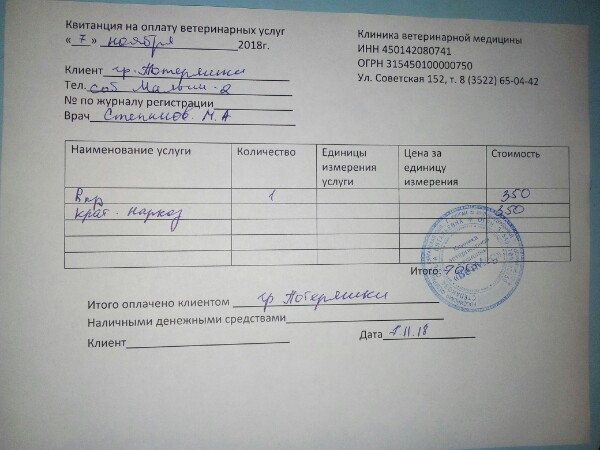 Квитанция на оплату ветеринарных услуг
« 7 » ноября 2018г.
Клиент гр. Потеряшки
Тел. соб Малыш-2
№ по журналу регистрации
Врач Степанов. М.А
Клиника ветеринарной медицины
ИНН 450142080741
ОГРН 315450100000750
Ул. Советская 152, т. 8 (3522) 65-04-42
Наименование услуги Количество Единицы измерения услуги Цена за единицу измерения Стоимость
1 350
крат. наркоз 550
Итого:
Итого оплачено клиентом гр Потеряшки
Наличными денежными средствами
Клиент Дата 8.11.18